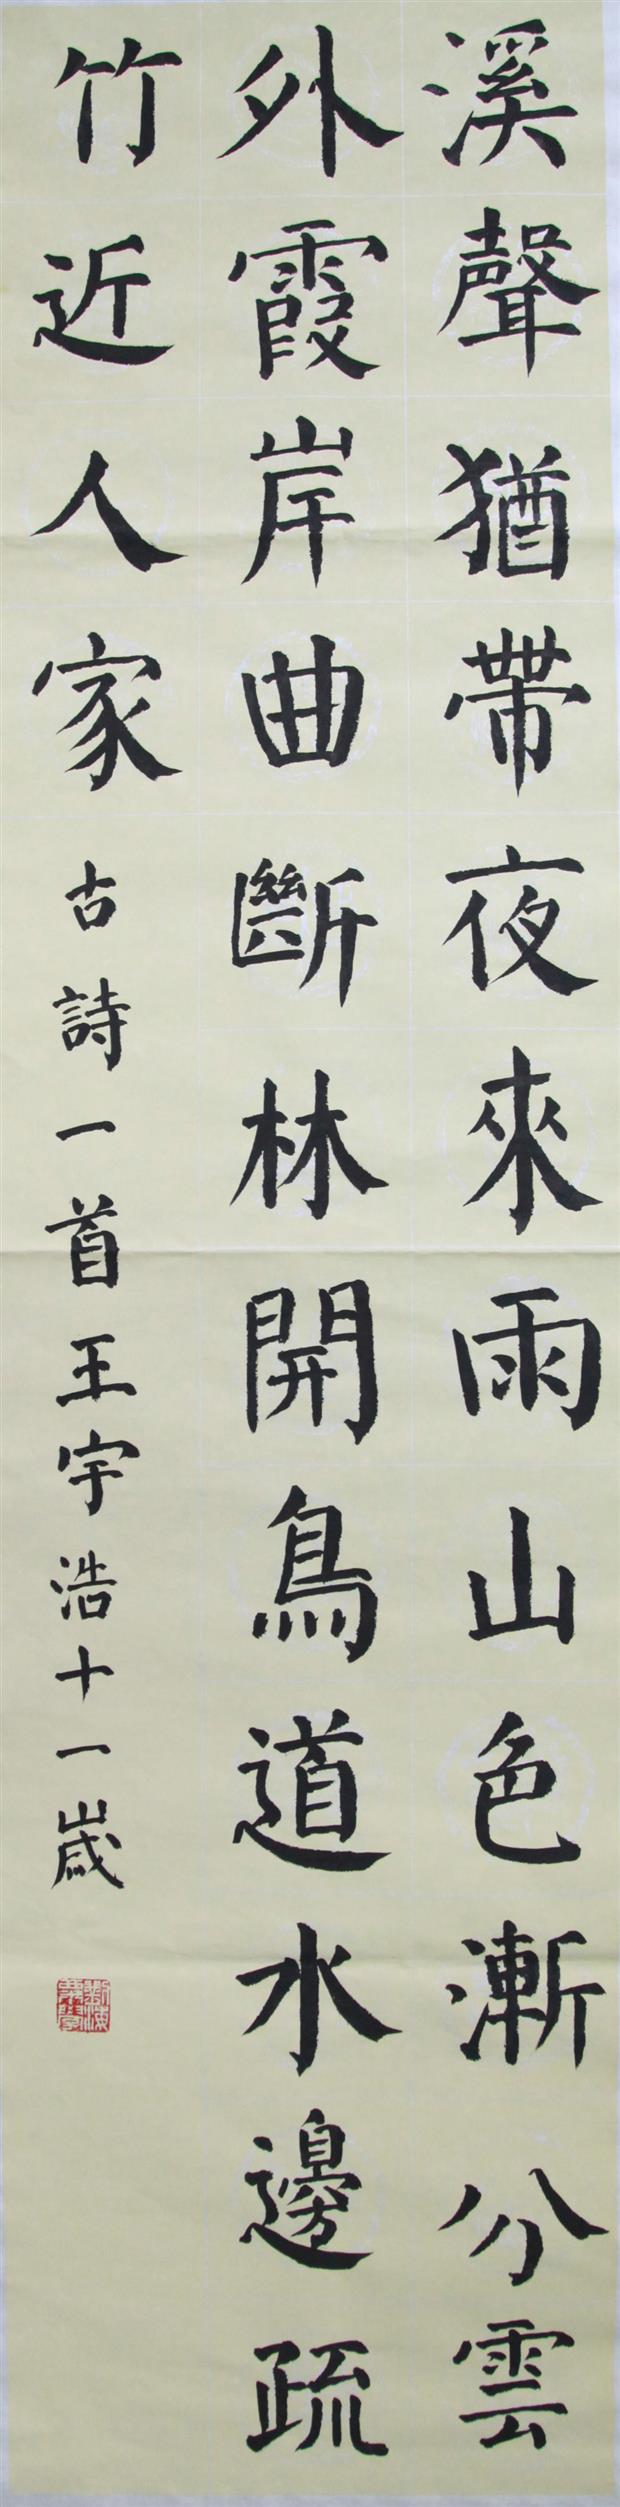 溪聲猶帶夜來雨山色漸分雲
外霞岸曲斷林開鳥道水邊疏
竹近人家
古詩一首王宇浩十一歲